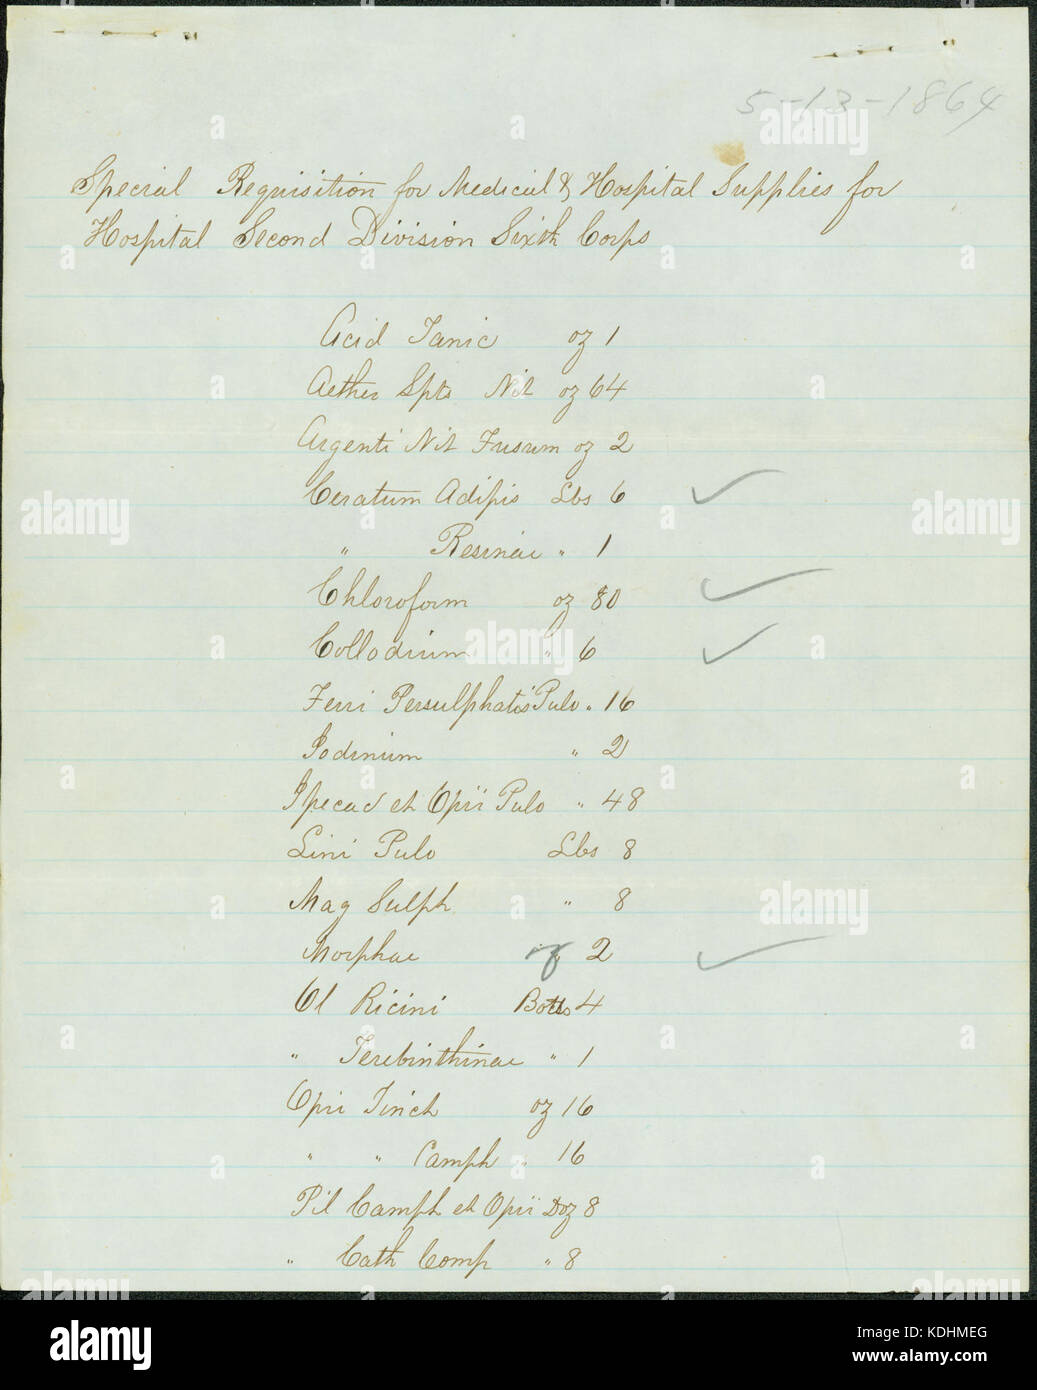 5-13-1864
Special Requisition for Medical & Hospital Supplies for
Hospital Second Division Sixth Corps
Acid Tanic oz 1
Aether Spts Nit oz 64
Argenti Nit Fusum oz 2
Ceratum Adipis Lbs 6
" Resinae " 1
Chloroform oz 80
Collodium " 6
Ferri Persulphatis Pulv " 16
Iodinium " 2
Ipecac et Opii Pulv " 48
Lini Pulv Lbs 8
Mag Sulph " 8
Morphae oz 2
Ol Ricini Botts 4
" Terebinthinae " 1
Opii Tinct oz 16
" " Camph " 16
Pil Camph et Opii Doz 8
" Cath Comp " 8
alamy
alamy
Image ID: KDHMEG
www.alamy.com